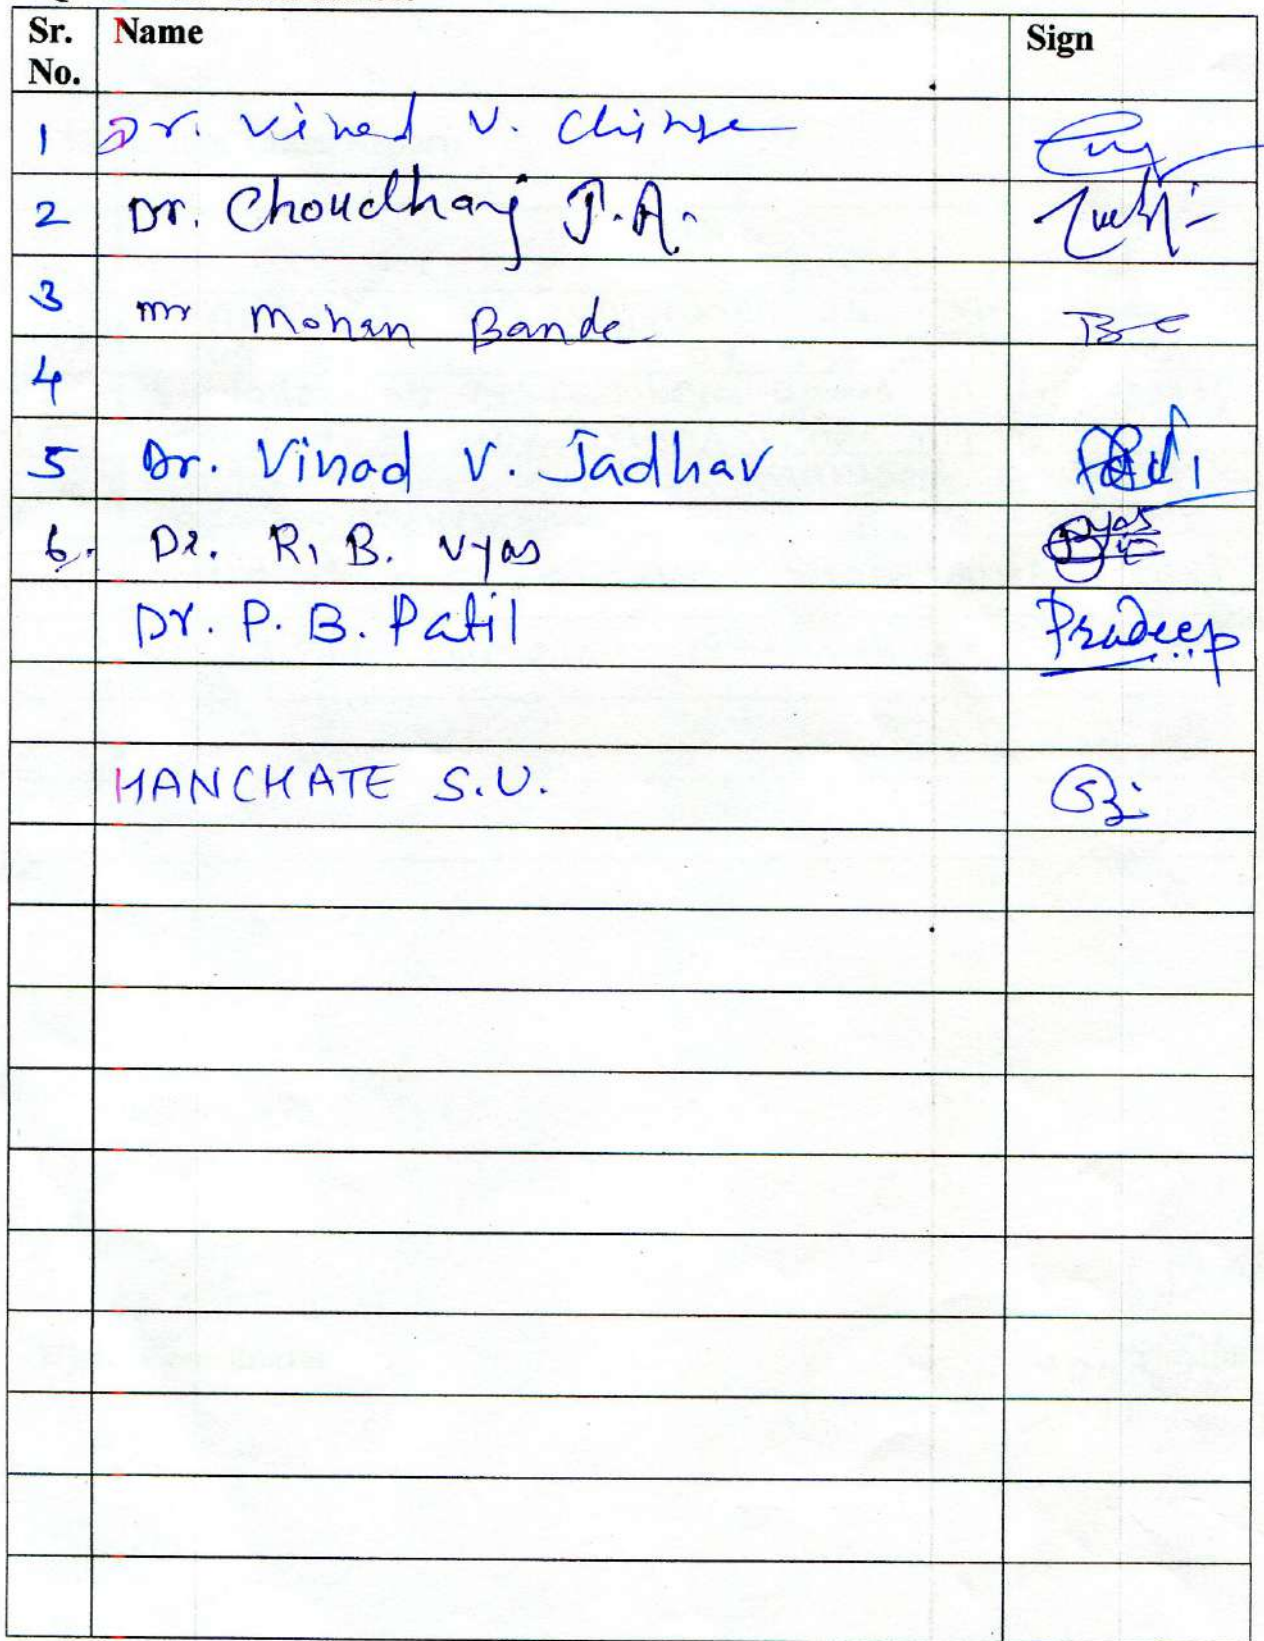 Sr. No. Name Sign
1 Dr. Vinod V.
2 Dr. Choudhari J.A.
3 mr Mohan Bande
4
5 Dr. Vinod V. Jadhav
6. Dr. R. B. Vyas
Dr. P. B. Patil Pradeep
HANCHATE S.U.